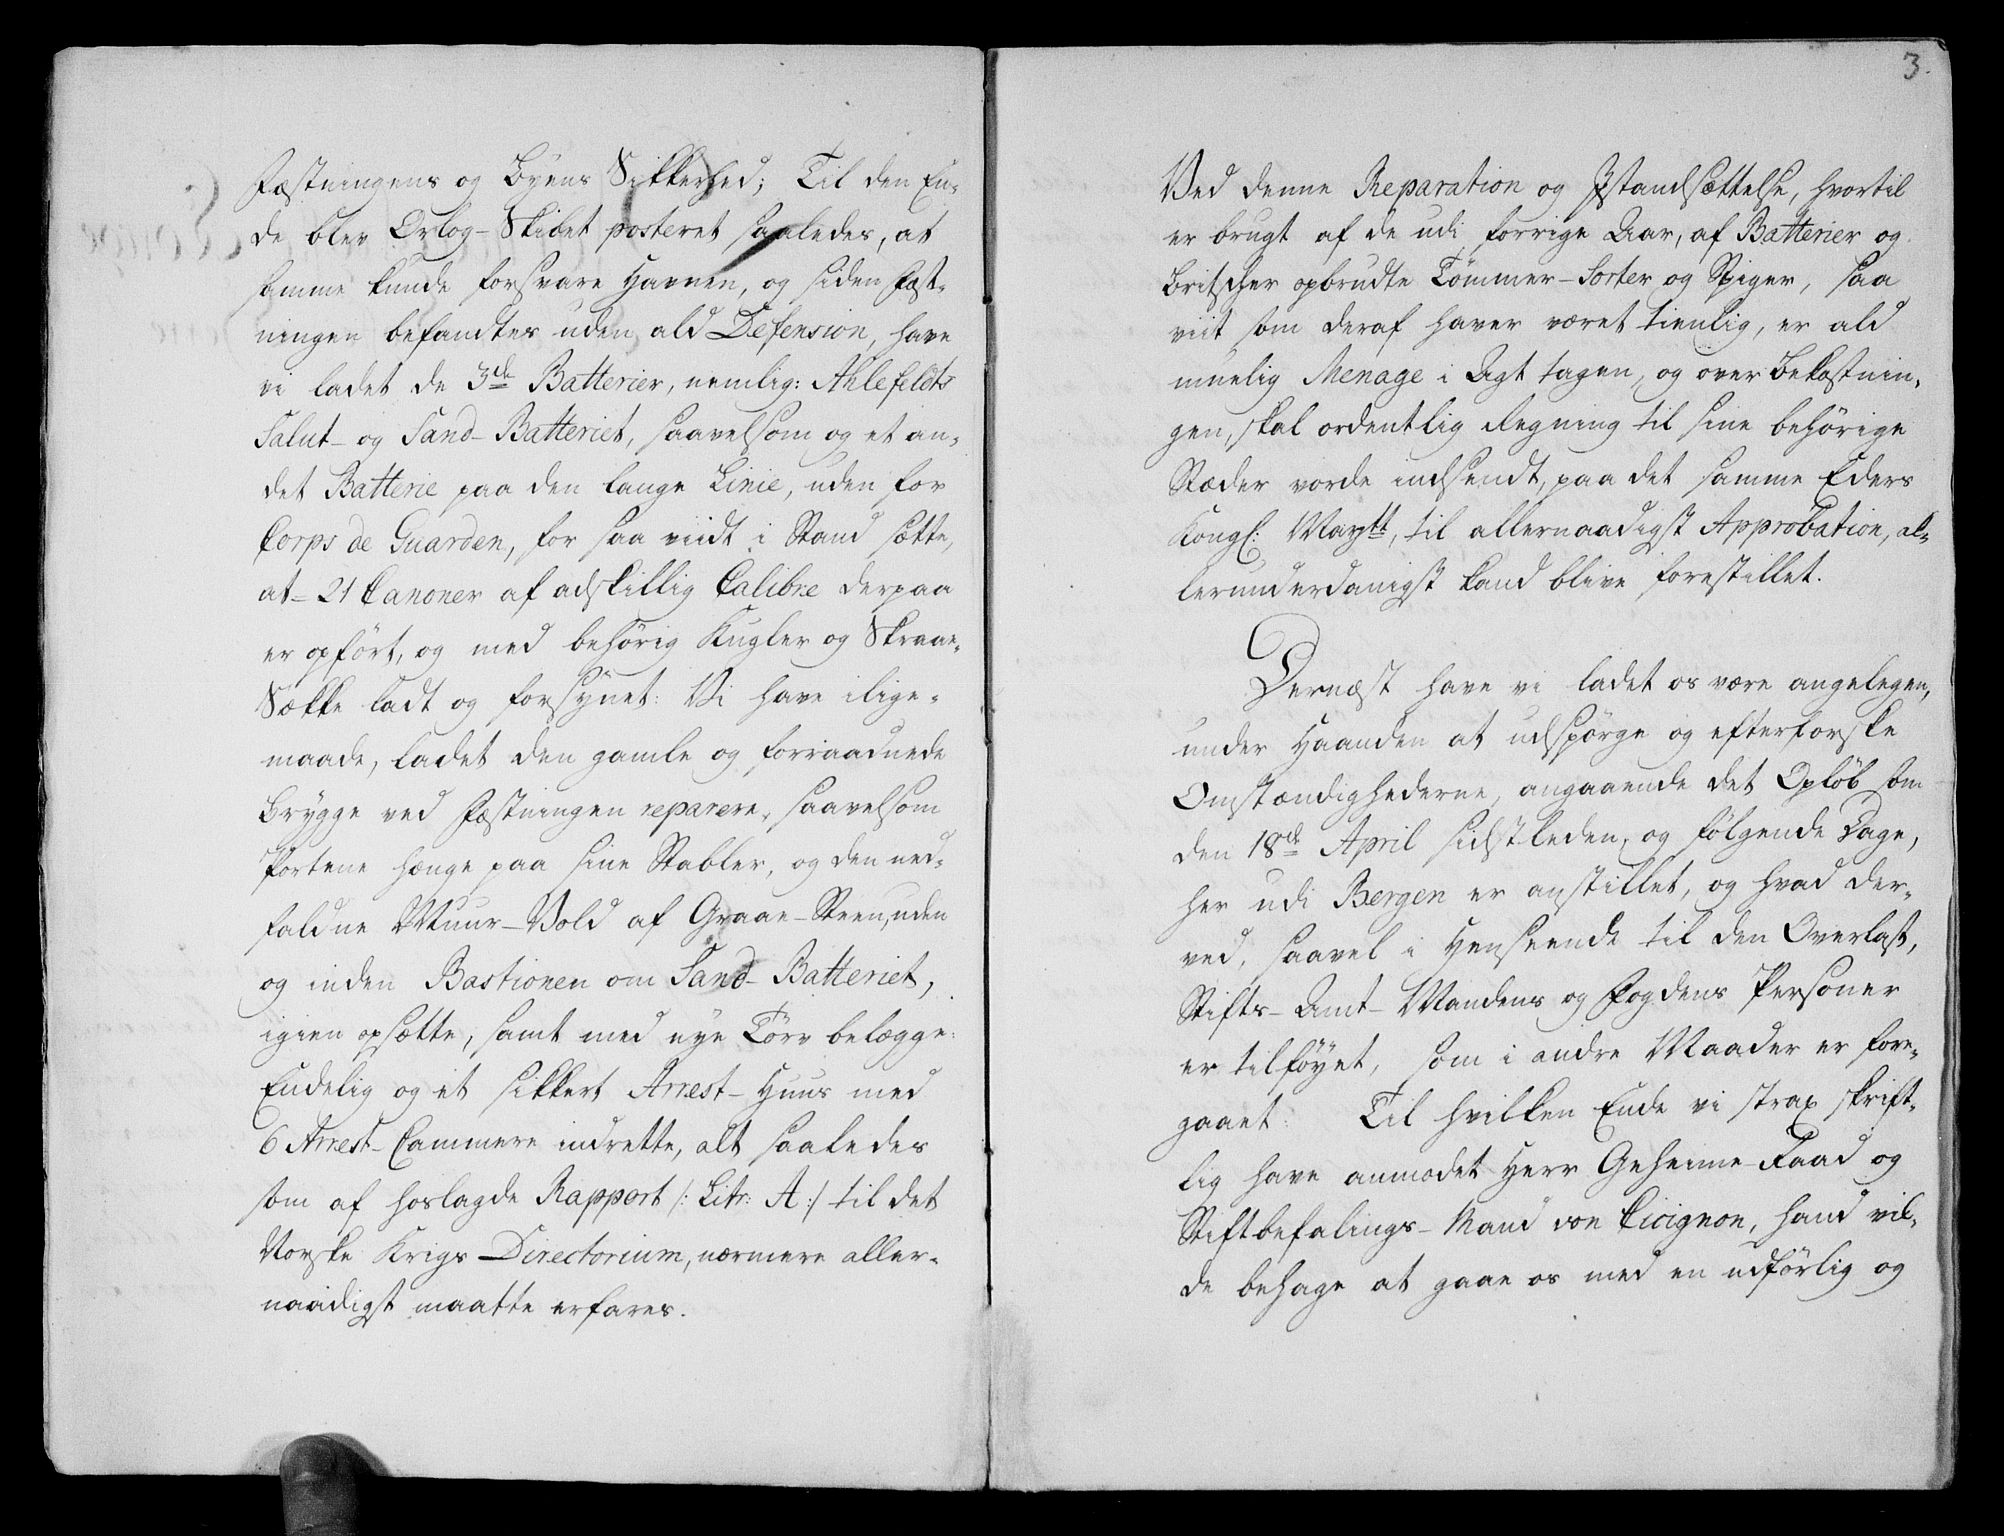 Fæstningens og Byens Sikkerhed; Til den En-
de blev Orlog-Skibet posteret saaledes, at
samme kunde forsvare Havnen, og siden Fæst-
ningen befandtes uden ald Defension, have
vi ladet de 3de Batterier, nemlig: Ahlefeldts
Salut- og Sand-Batteriet, saavelsom og et an-
det Batterie paa den lange Linie, uden for
Corps de Guarden, for saa viidt i Stand sætte,
at 21 Canoner af adskillig Calibre derpaa
er opført, og med behörig Kugler og Skraae-
Sække ladt og forsÿnet: Vi have ilige-
maade, ladet den gamle og forraadnede
Brygge ved Fæstningen reparere, saavelsom
Portene hænge paa sine Stabler, og den ned-
faldne Muur-Vold af Graae-Steen, uden
og inden Bastionen om Sand-Batteriet,
igien opsætte, samt med nye Törv belægge:
Endelig og et sikkert Arrest-Huus med
6 Arrest-Cammere indrette, alt saaledes
som af hoslagde Rapport /: Litr: A :/ til det
Norske Krigs Directorium, nærmere aller-
naadigst maatte erfares.
3.
Ved denne Reparation og Istandsættelse, hvortil
er brugt af de udi forrige Aar, af Batterier og
Britscher opbrudte Tömmer-Sorter og Spiger, saa
viit som deraf haver været tienlig, er ald
muelig Menage i Agt tagen, og over Bekostnin-
gen, skal ordentlig Regning til sine behörige
Stæder vorde indsendt, paa det samme Eders
Kongl: Maytt, til allernaadigst Approbation, al-
lerunderdanigst kand blive forestillet.
Dernæst have vi ladet os være angelegen,
under Haanden at udspörge og efterforske
Omstændighederne, angaaende det Oplöb som
den 18de April sidstleden, og fölgende Dage,
her udi Bergen er anstillet, og hvad der-
ved, saavel i Henseende til den Overlast,
Stifts-Amt-Mandens og Fogdens Personer
er tilföyet, som i andre Maader er fore-
gaaet: Til hvilken Ende vi strax skrift-
lig have anmodet Herr Geheime-Raad og
Stiftbefalings-Mand von Cicignon, hand vil-
de behage at gaae os med en udförlig og